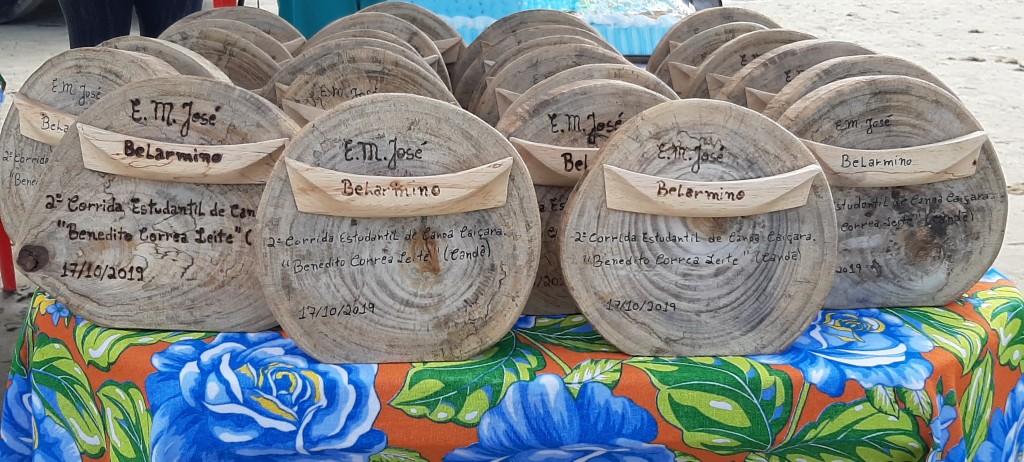 E.M. José
Belarmino
2ª Corrida Estudantil de Can
"Benedito Correa Leite" (
17/10/2019
E.M. José
Belarmino
2ª Corrida Estudantil de Canoa Caiçara.
"Benedito Correa Leite" (Candê)
17/10/2019
E.M. José
Belarmino
2ª Corrida Estudantil de Canoa Caiçara.
"Benedito Correa Leite" (Candê)
17/10/2019
E.M. José
Belarmino
studantil de Canoa Caiçara.
Correa Leite" (Candê)
2019
E.M. José
Bel
E.M. José
2ª Corrida
"Ben